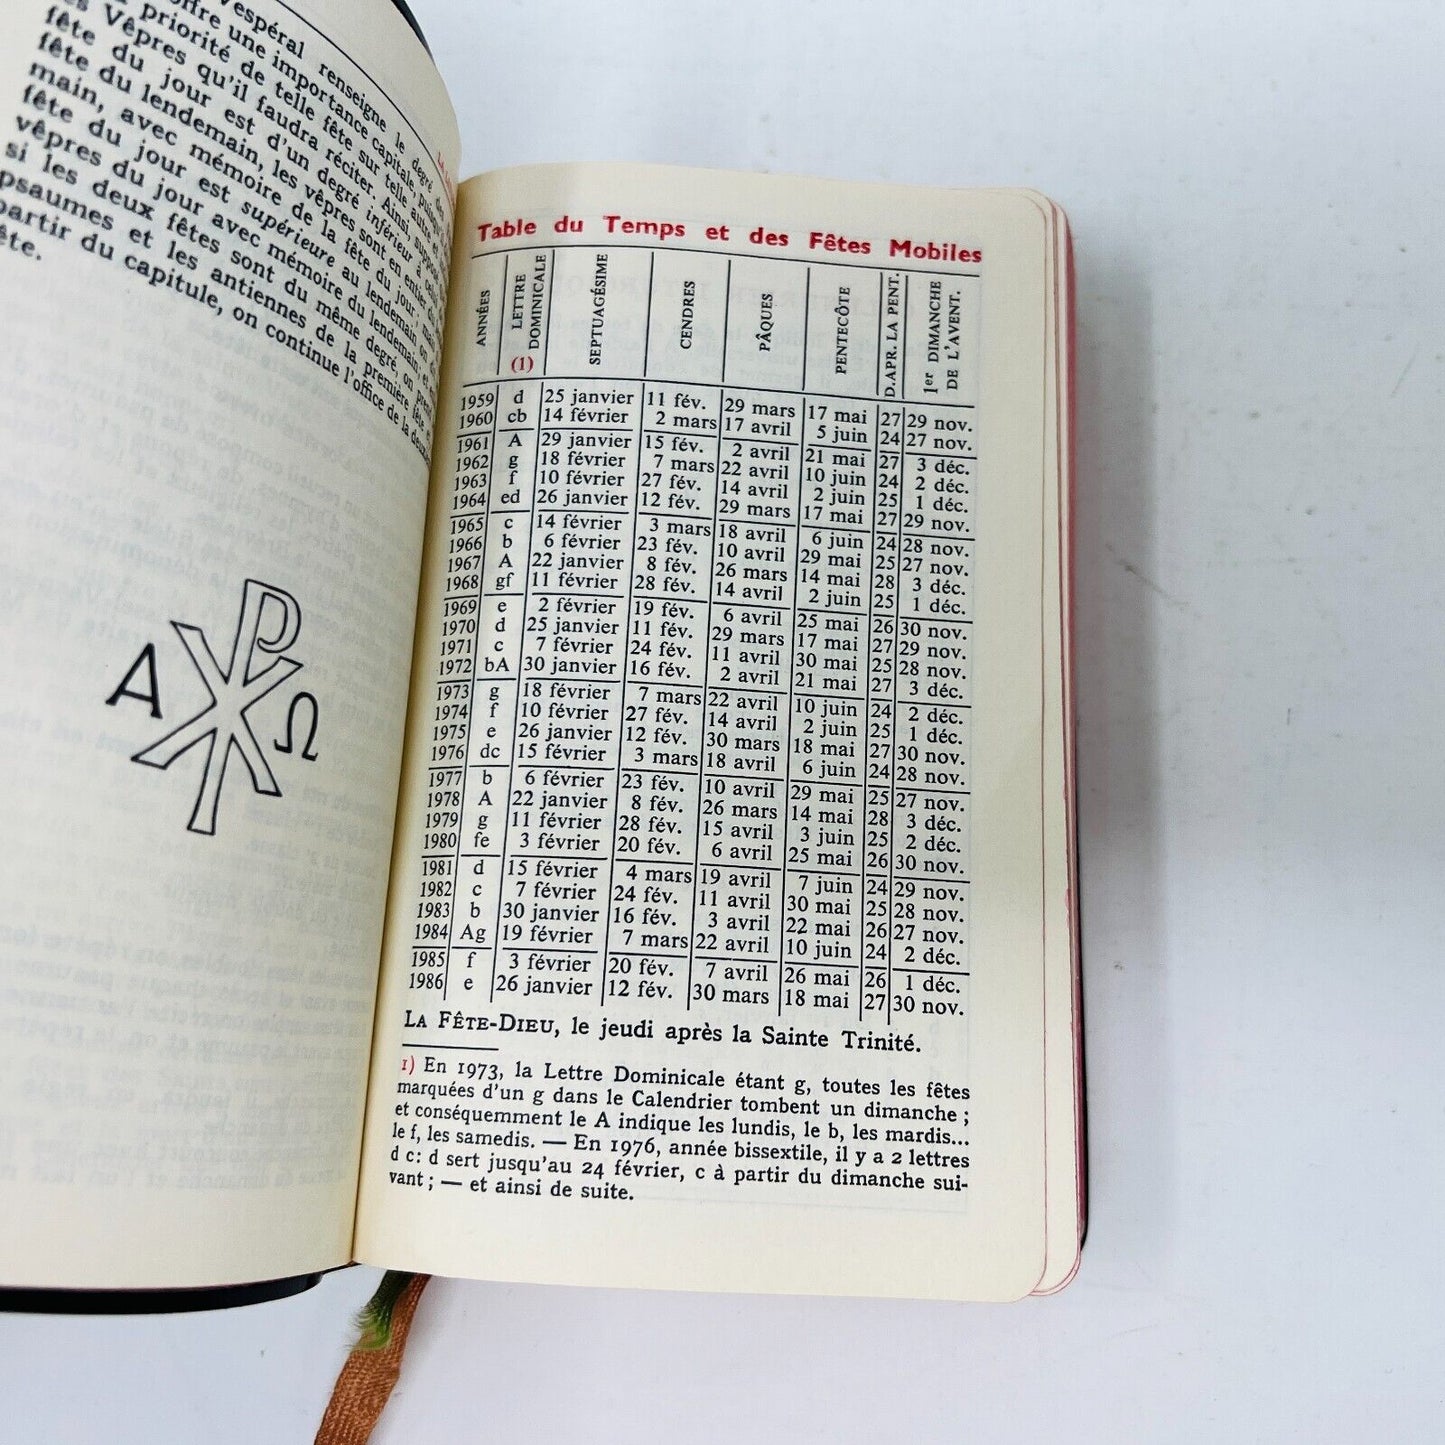 Vespéral renseigne le degré des
offre une importance capitale, puisqu'
la priorité de telle fête sur telle autre et
es Vêpres qu'il faudra réciter. Ainsi, suppose
fête du jour est d'un degré inférieur à celui
fête du lendemain, les vêpres sont en entier de
main, avec mémoire de la fête du jour; mais
fête du jour est supérieure au lendemain on
vêpres du jour avec mémoire du lendemain, et
si les deux fêtes sont du même degré, on prend
psaumes et les antiennes de la première fête, et
partir du capitule, on continue l'office de la deuxiè
ête.
A Ω
Table du Temps et des Fêtes Mobiles
ANNÉES LETTRE DOMINICALE (1) SEPTUAGÉSIME CENDRES PÂQUES PENTECÔTE D. APR. LA PENT. 1er DIMANCHE DE L'AVENT.
1959 d 25 janvier 11 fév. 29 mars 17 mai 27 29 nov.
1960 cb 14 février 2 mars 17 avril 5 juin 24 27 nov.
1961 A 29 janvier 15 fév. 2 avril 21 mai 27 3 déc.
1962 g 18 février 7 mars 22 avril 10 juin 24 2 déc.
1963 f 10 février 27 fév. 14 avril 2 juin 25 1 déc.
1964 ed 26 janvier 12 fév. 29 mars 17 mai 27 29 nov.
1965 c 14 février 3 mars 18 avril 6 juin 24 28 nov.
1966 b 6 février 23 fév. 10 avril 29 mai 25 27 nov.
1967 A 22 janvier 8 fév. 26 mars 14 mai 28 3 déc.
1968 gf 11 février 28 fév. 14 avril 2 juin 25 1 déc.
1969 e 2 février 19 fév. 6 avril 25 mai 26 30 nov.
1970 d 25 janvier 11 fév. 29 mars 17 mai 27 29 nov.
1971 c 7 février 24 fév. 11 avril 30 mai 25 28 nov.
1972 bA 30 janvier 16 fév. 2 avril 21 mai 27 3 déc.
1973 g 18 février 7 mars 22 avril 10 juin 24 2 déc.
1974 f 10 février 27 fév. 14 avril 2 juin 25 1 déc.
1975 e 26 janvier 12 fév. 30 mars 18 mai 27 30 nov.
1976 dc 15 février 3 mars 18 avril 6 juin 24 28 nov.
1977 b 6 février 23 fév. 10 avril 29 mai 25 27 nov.
1978 A 22 janvier 8 fév. 26 mars 14 mai 28 3 déc.
1979 g 11 février 28 fév. 15 avril 3 juin 25 2 déc.
1980 fe 3 février 20 fév. 6 avril 25 mai 26 30 nov.
1981 d 15 février 4 mars 19 avril 7 juin 24 29 nov.
1982 c 7 février 24 fév. 11 avril 30 mai 25 28 nov.
1983 b 30 janvier 16 fév. 3 avril 22 mai 26 27 nov.
1984 Ag 19 février 7 mars 22 avril 10 juin 24 2 déc.
1985 f 3 février 20 fév. 7 avril 26 mai 26 1 déc.
1986 e 26 janvier 12 fév. 30 mars 18 mai 27 30 nov.
LA FÊTE-DIEU, le jeudi après la Sainte Trinité.
1) En 1973, la Lettre Dominicale étant g, toutes les fêtes
marquées d'un g dans le Calendrier tombent un dimanche ;
et conséquemment le A indique les lundis, le b, les mardis...
le f, les samedis. — En 1976, année bissextile, il y a 2 lettres
d c: d sert jusqu'au 24 février, c à partir du dimanche sui-
vant ; — et ainsi de suite.